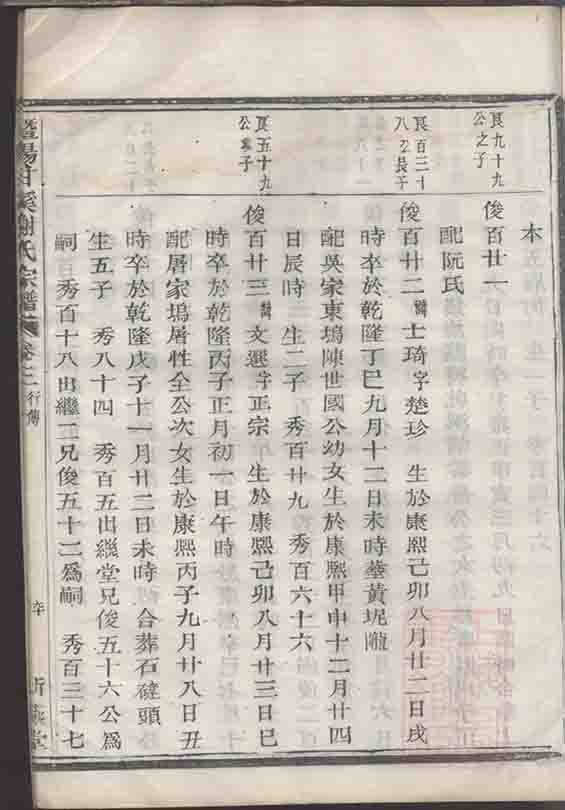 本
良九十九
公之子
俊百廿一
配阮氏
良百三十
八公長子
俊百廿二 士琦字楚珍 生於康熙己卯八月廿二日戌
時卒於乾隆丁巳九月十二日未時葬黃坭隴
配吳家東塢陳世國公幼女生於康熙甲申十二月廿四
日辰時 生二子 秀百廿九 秀百六十六
良五十九
公 子
俊百廿三 文選字正宗 生於康熙己卯八月廿三日巳
時卒於乾隆丙子正月初一日午時
配屠家塢屠性全公次女生於康熙丙子九月廿八日丑
時卒於乾隆戊子十一月廿二日未時 合葬石 頭
生五子 秀八十四 秀百五出繼堂兄俊五十六公爲
嗣 秀百十八出繼二兄俊五十二爲嗣 秀百三十七
暨陽 溪謝氏宗譜 卷之 行傳